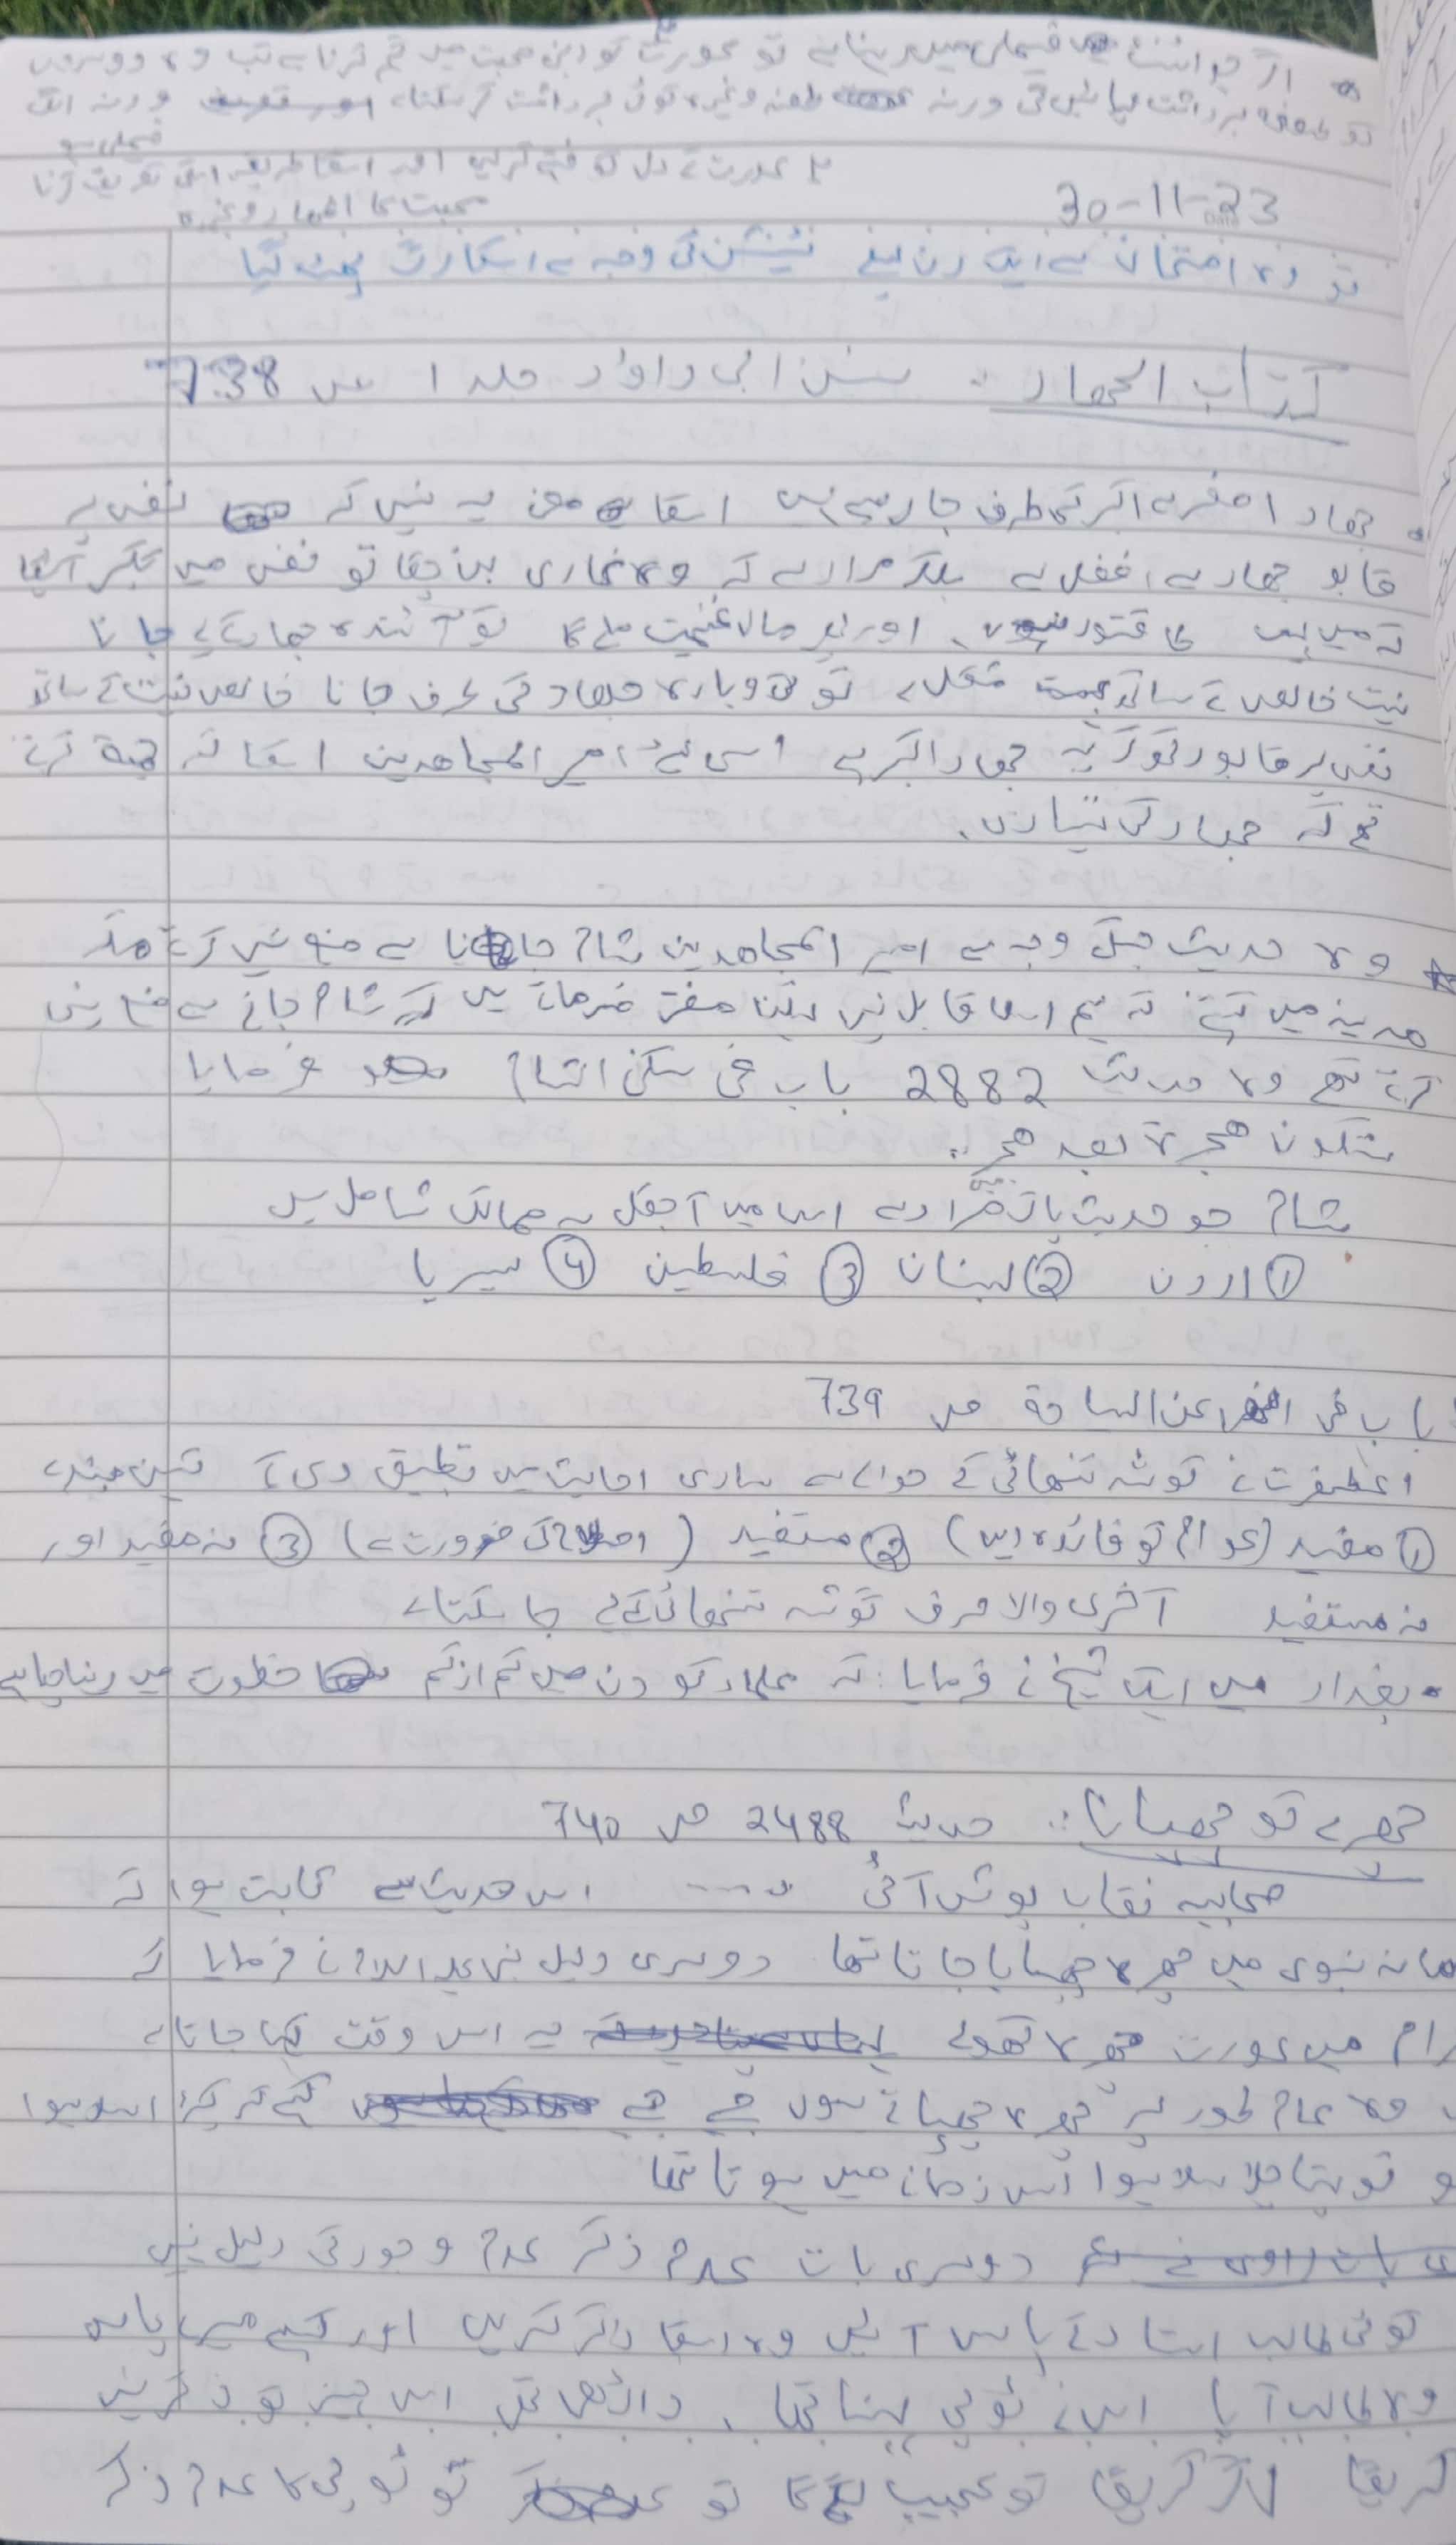 اگر جوائنٹ فیملی میں رہنا ہے تو عورت کو اپنی محبت میں گم کرنا ہے تب وہ دوسروں
کو برداشت کر پائیں گی ورنہ طعنہ وغیرہ کوئی برداشت کر سکتا ورنہ الگ
فیملی ہو
عورت کے دل کو فتح کر لیں اور اسکا طریقہ اسکی تعریف کرنا
محبت کا اظہار وغیرہ
30-11-23
تو وہ امتحان سے ایک دن پہلے ٹینشن کی وجہ سے اسکا رگ پھٹ گیا
کتاب الجہاد :: سنن ابی داؤد جلد ١ ص 738
جہاد اصغر سے اکبر کی طرف جا رہے ہیں اسکا معنی یہ نہیں کہ نفس پہ
قابو جہاد سے افضل ہے بلکہ مراد ہے کہ وہ غازی بن چکا تو نفس میں تکبر آئیگا
کہ میں ہوں اور پھر مال غنیمت ملے گا تو آئندہ جہاد کے لے جانا
نیت خالص کے ساتھ مشکل ہے تو دوبارہ جہاد کی طرف جانا خالص نیت کے ساتھ
نفس پر قابو رکھ کر یہ جہاد اکبر ہے اسی لئے امیر المجاہدین اسکا کرتے
تھے کہ جہاد کی تیاری۔
وہ حدیث جسکی وجہ سے امیر المجاہدین شام جانا سے منع نہیں کرتے مگر
مدینہ میں کہتے کہ ہم اسکا قابل نہیں لیکن فرماتے ہیں کہ شام جانے سے منع نہیں
کرتے تھے وہ حدیث 2882 باب فی سکنی الشام فرمایا
ستکون ھجرة بعد ھجر ..
شام جو حدیث پاک میں مراد ہے اس میں آجکل یہ ممالک شامل ہیں
① اردن ② لبنان ③ فلسطین ④ سیریا
باب فی النھی عن السیاحة ص 739
اعلیحضرت نے گوشہ تنہائی کے حوالے سے ساری احادیث میں تطبیق دی ہے تین بندے
① مفید (عوام کو فائدہ دیں) ② مستفید (اصلاح کی ضرورت ہے) ③ نہ مفید اور
نہ مستفید آخری والا صرف گوشہ تنہائی کے لے جا سکتا ہے
• بغداد میں ایک شیخ نے فرمایا: کہ علماء کو دن میں کم از کم خلوت میں رہنا چاہیے
چہرے کو چھپانا :: حدیث 2488 ص 740
صحابیہ نقاب پوش آئی .... اس حدیث سے ثابت ہوا کہ
مانہ نبوی میں چہرہ چھپایا جاتا تھا دوسری دلیل نبی علیہ السلام نے فرمایا کہ
رام میں عورت چہرہ کھولے یہ اس وقت کہا جاتا ہے
وہ عام طور پر چہرہ چھپاتے ہوں جیسے کہے کہ کپڑا اسلا ہوا
و تو پتا چلا سلا ہوا اس زمانے میں ہوتا تھا
دوسری بات عدم ذکر عدم وجود کی دلیل نہیں
کوئی طالب استاد کے پاس آئیں وہ اسکا ذکر کریں اور کہے میرے پاس
وہ طالب آیا اس نے ٹوپی پہنا تھا، داڑھی تھی اس چیز کو ذکر نہیں
کریگا اگر کریگا تو عجیب لگے گا تو تو ٹوپی کا عدم ذکر